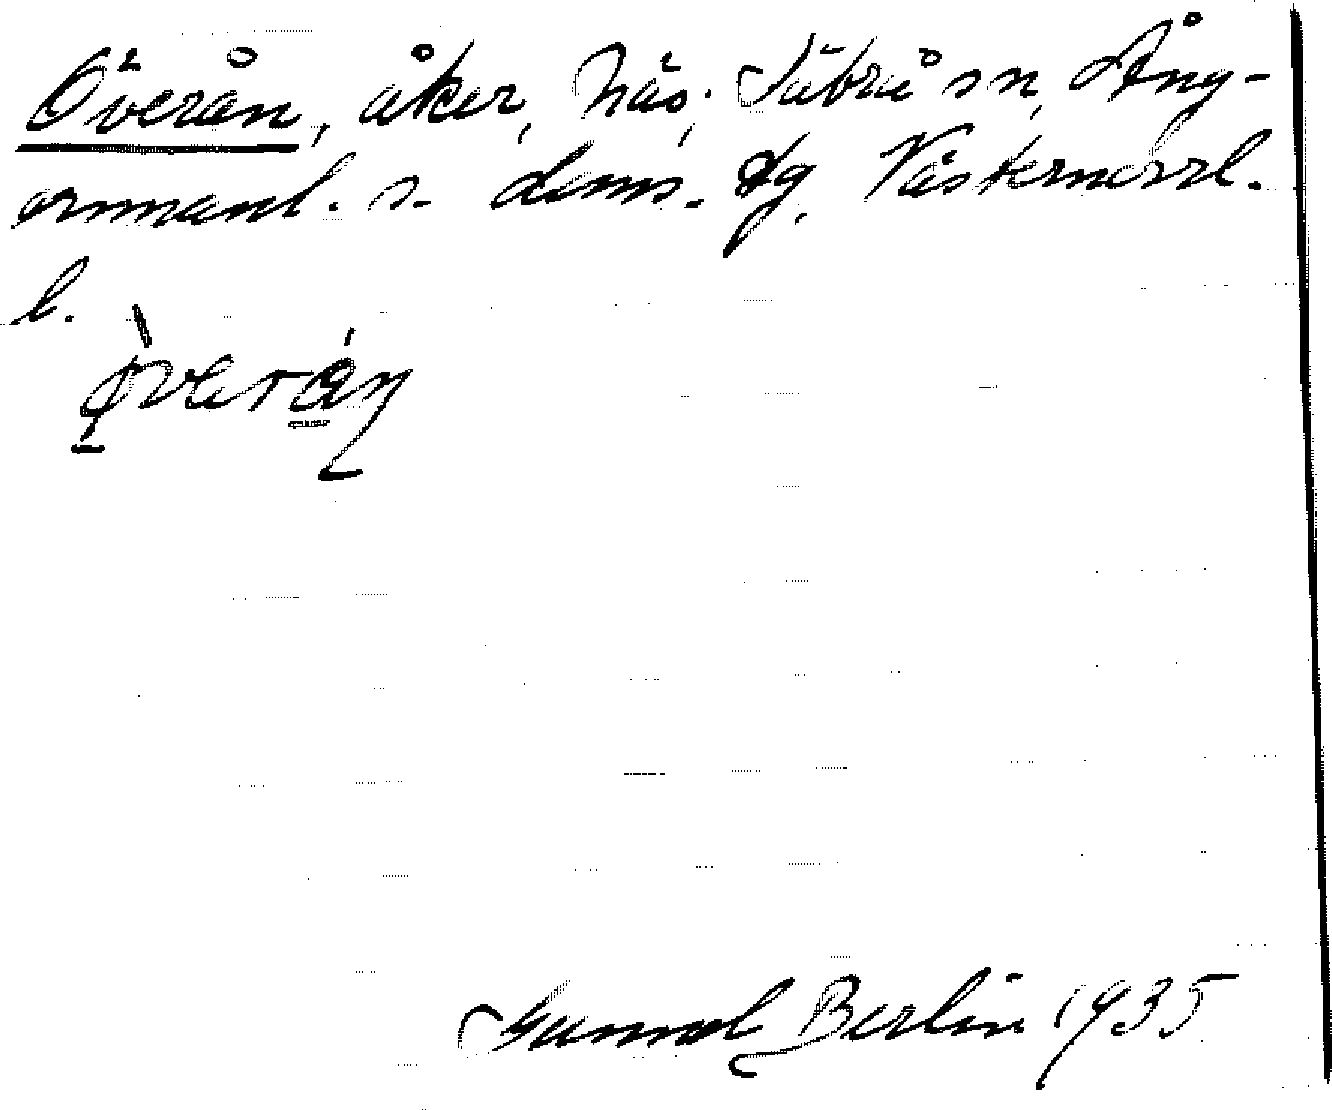 Överån, åker, Näs, Säbrå sn, Ång-
ermanl. s. doms. dg, Västernorrl.
l.
Gunnel Berlin 1935